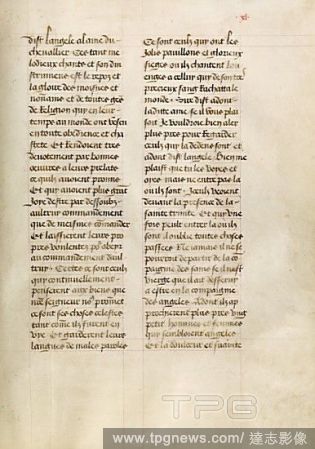 xl
dist langele a lame du
chevallier Ces tant me
lodieux chants et son din
strumens est le repos et
la gloire des moisnes et
nonnains et de toutes gens
de Religion qui en leur
temps au monde ont vescu
en toute obedience et cha
stete Et rendoient tres
devotement par bonnes
oeuvres a leurs prelats
ce quilz avoient promis
Et qui avoient plus grant
Joye destre par dessoubz
aultrui commandement
que de meismes commander
Et laissierent leurs pro
pres voulentez por obeir
au commandement daul
trui Certes ce sont ceulx
qui continuellement
penserent aux biens que
nostre seigneur nous promet
ce sont ses choses celestes
tant comme ilz furent en
vye Et garderent leurs
langues de males paroles
Ce sont ceulx qui ont les
Jolis pavillons et glorieux
sieges ou ilz chantent lou
enges a cellui qui de son tres
precieux sang Rachatta le
monde Puis dist adont
ladite ame se il vous plai
soit Je vouldroie bien aler
plus pres pour Regarder
ceulx qui la dedens sont et
adont dist langele Bien me
plaist que tu les voyes et
oyes mais ne entre pas la
ou ilz sont Jceulx vivent
devant la presence de la
sainte trinite Et qui une
fois peult entrer la ou ilz
sont il oublie toutes choses
passees Ne jamais il ne se
pourroit de partir de la co
paignie des sains se il neust
vierge que il ait desservy
a estre en la compaignie
des angeles Adont ilz ap
procherent plus pres virent
petit hommes et femmes
qui sembloient angeles
Et la doulceur et suavite
TPG
www.tpgnews.com/ 達志影像